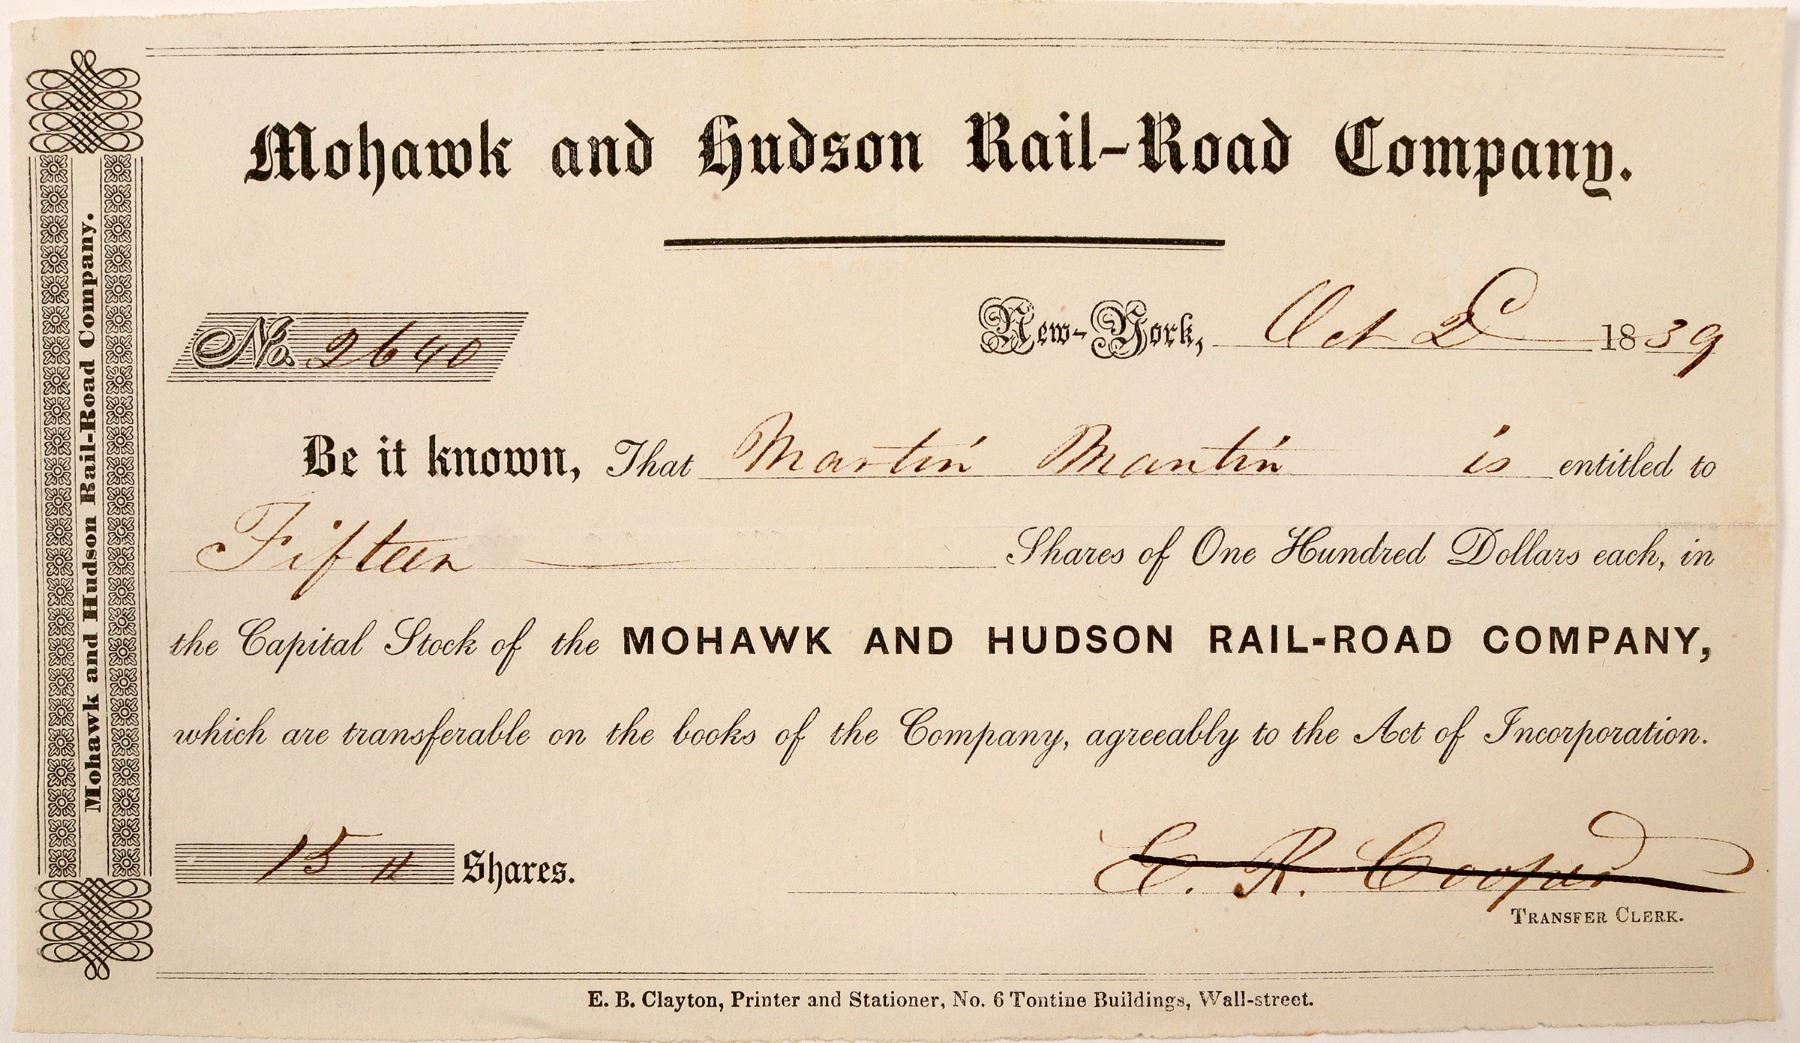 Mohawk and Hudson Rail-Road Company.
Mohawk and Hudson Rail-Road Company.
No. 2640
New-York, Oct 2d 1839
Be it known, That Martin Mantin is entitled to
Fifteen Shares of One Hundred Dollars each, in
the Capital Stock of the MOHAWK AND HUDSON RAIL-ROAD COMPANY,
which are transferable on the books of the Company, agreeably to the Act of Incorporation.
15 Shares.
E. R. Cooper
TRANSFER CLERK.
E. B. Clayton, Printer and Stationer, No. 6 Tontine Buildings, Wall-street.